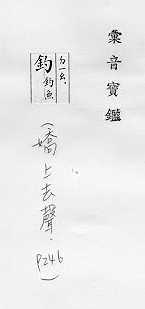 彙音寶鑑
ㄉㄧㄠ.
釣 釣魚
(嬌上去聲.
P246)